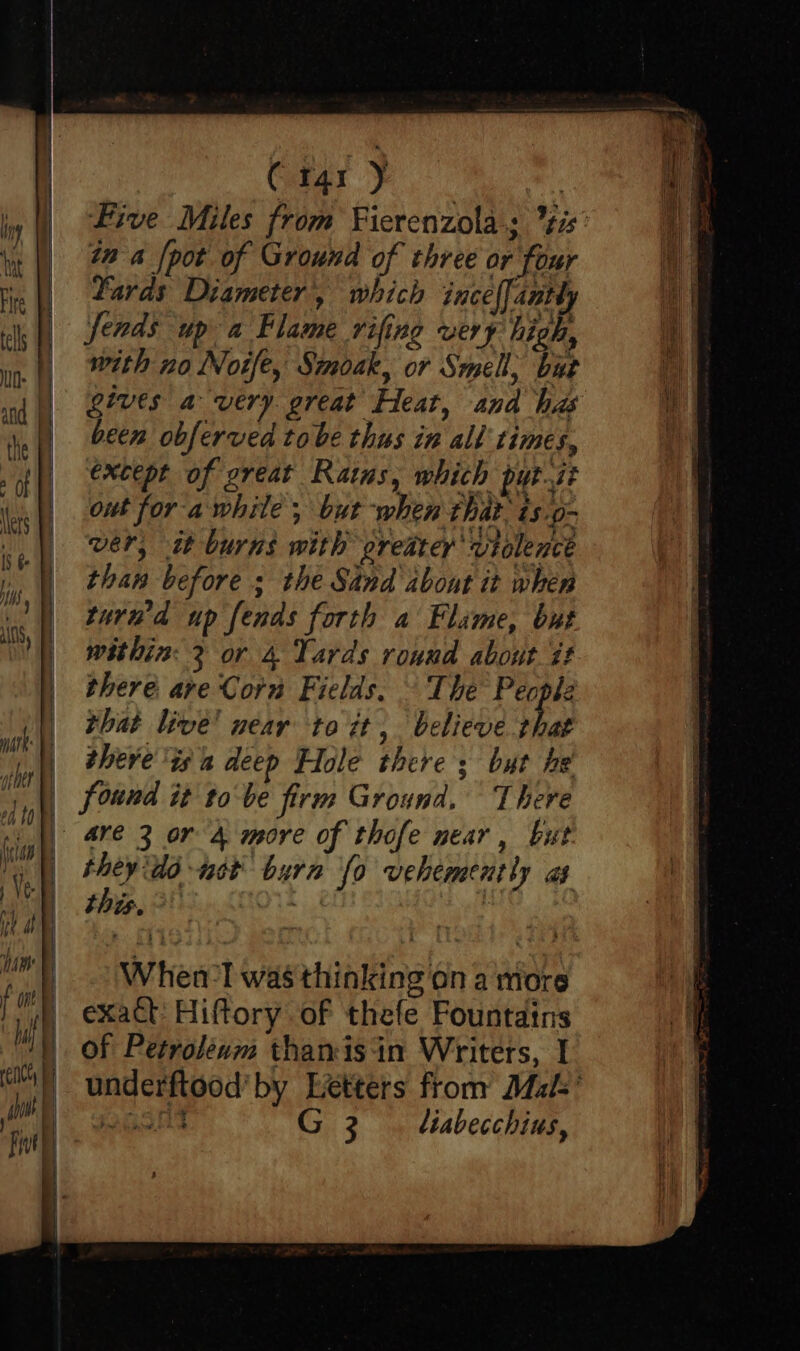 ( 141 )
Five Miles from Fierenzola; 'tis
in a ſpot of Ground of three or four
Yards Diameter, which inceſſantly
ſends up a Flame riſing very high,
with no Noiſe, Smoak, or Smell, but
gives a very great Heat, and has
been obſerved to be thus in all times,
except of great Rains, which put it
out for a while; but when that is o-
ver, it burns with greater violence
than before; the Sand about it when
turn'd up ſends forth a Flame, but
within 3 or 4 Yards round about it
there are Corn Fields. The People
that live near to it, believe that
there is a deep Hole there; but he
found it to be firm Ground. There
are 3 or 4 more of thoſe near, but
they do not burn ſo vehemently as
this.
When I was thinking on a more
exact Hiſtory of theſe Fountains
of Petroleum than is in Writers, I
underſtood by Letters from Mal-
G 3 liabecchius,